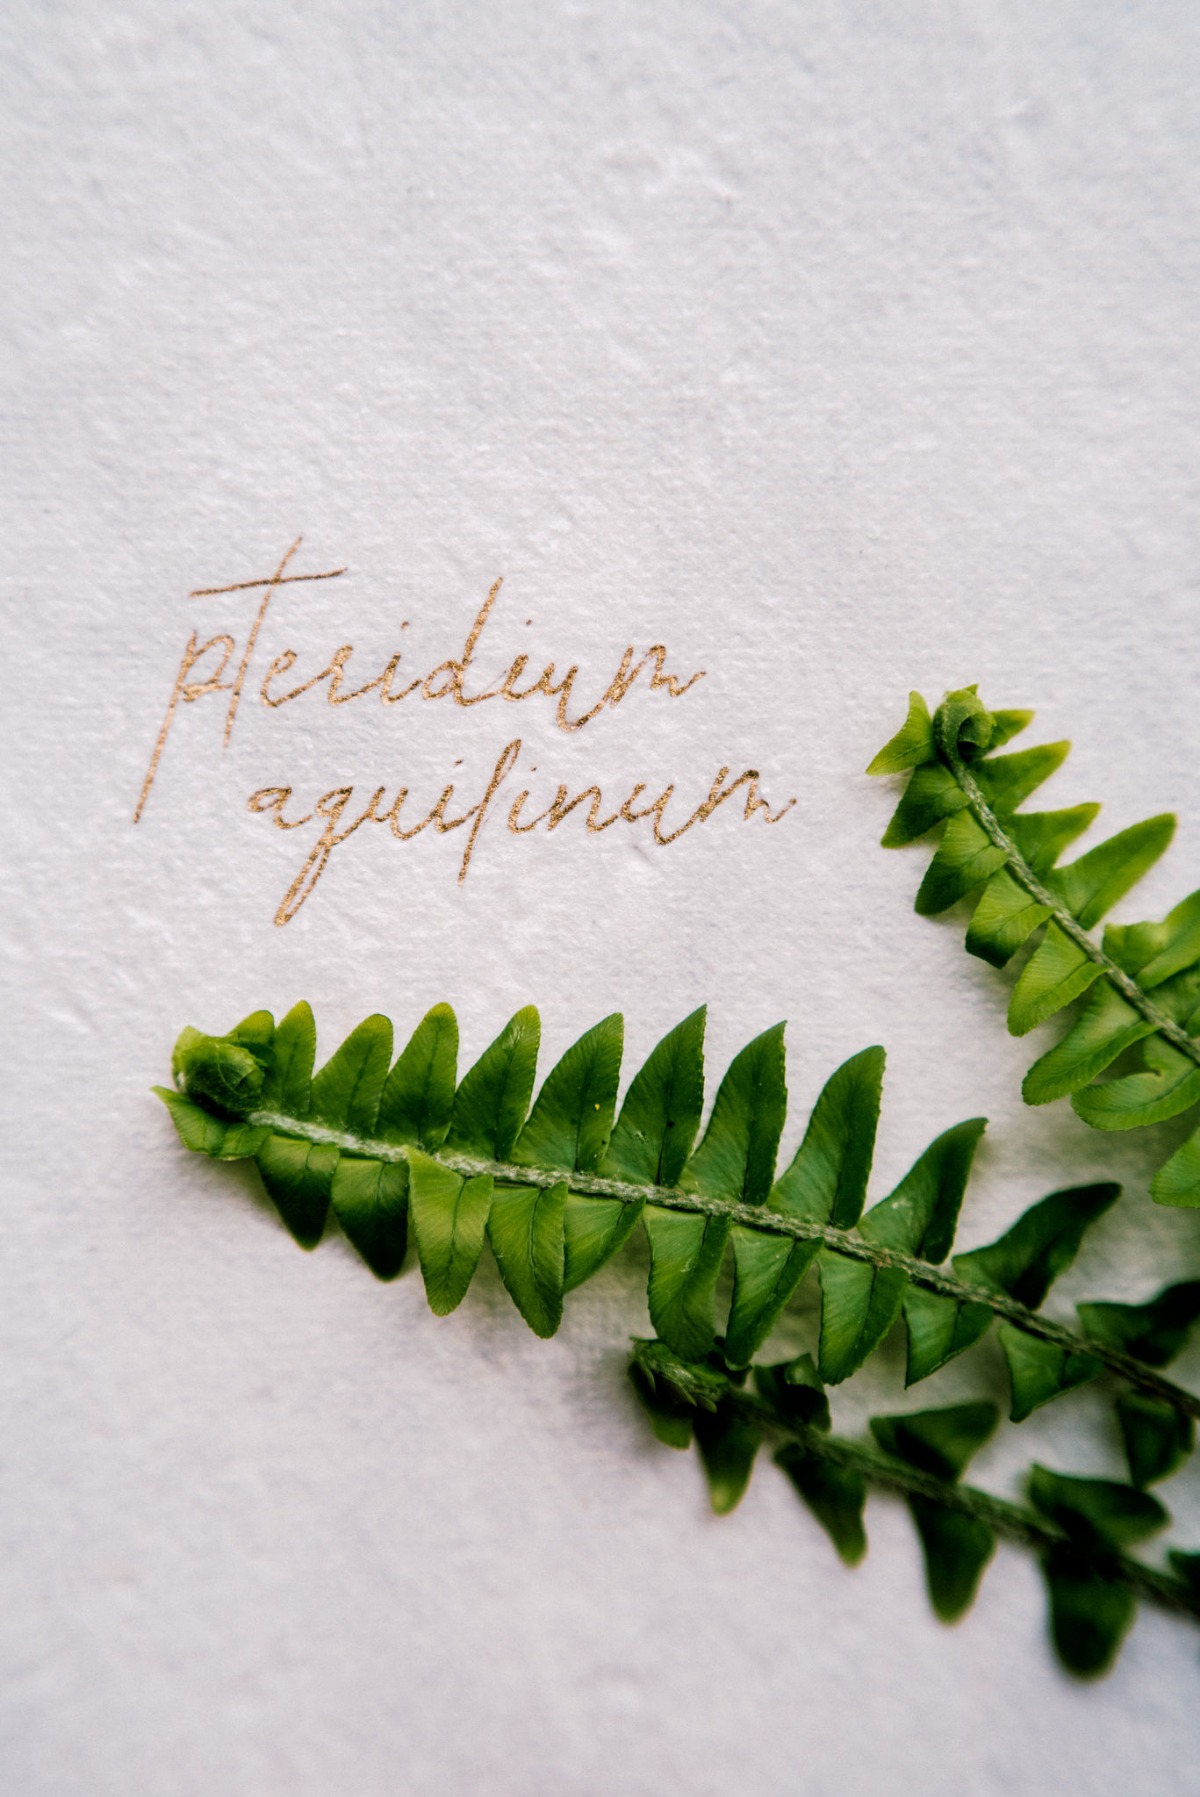 pteridium
aquilinum